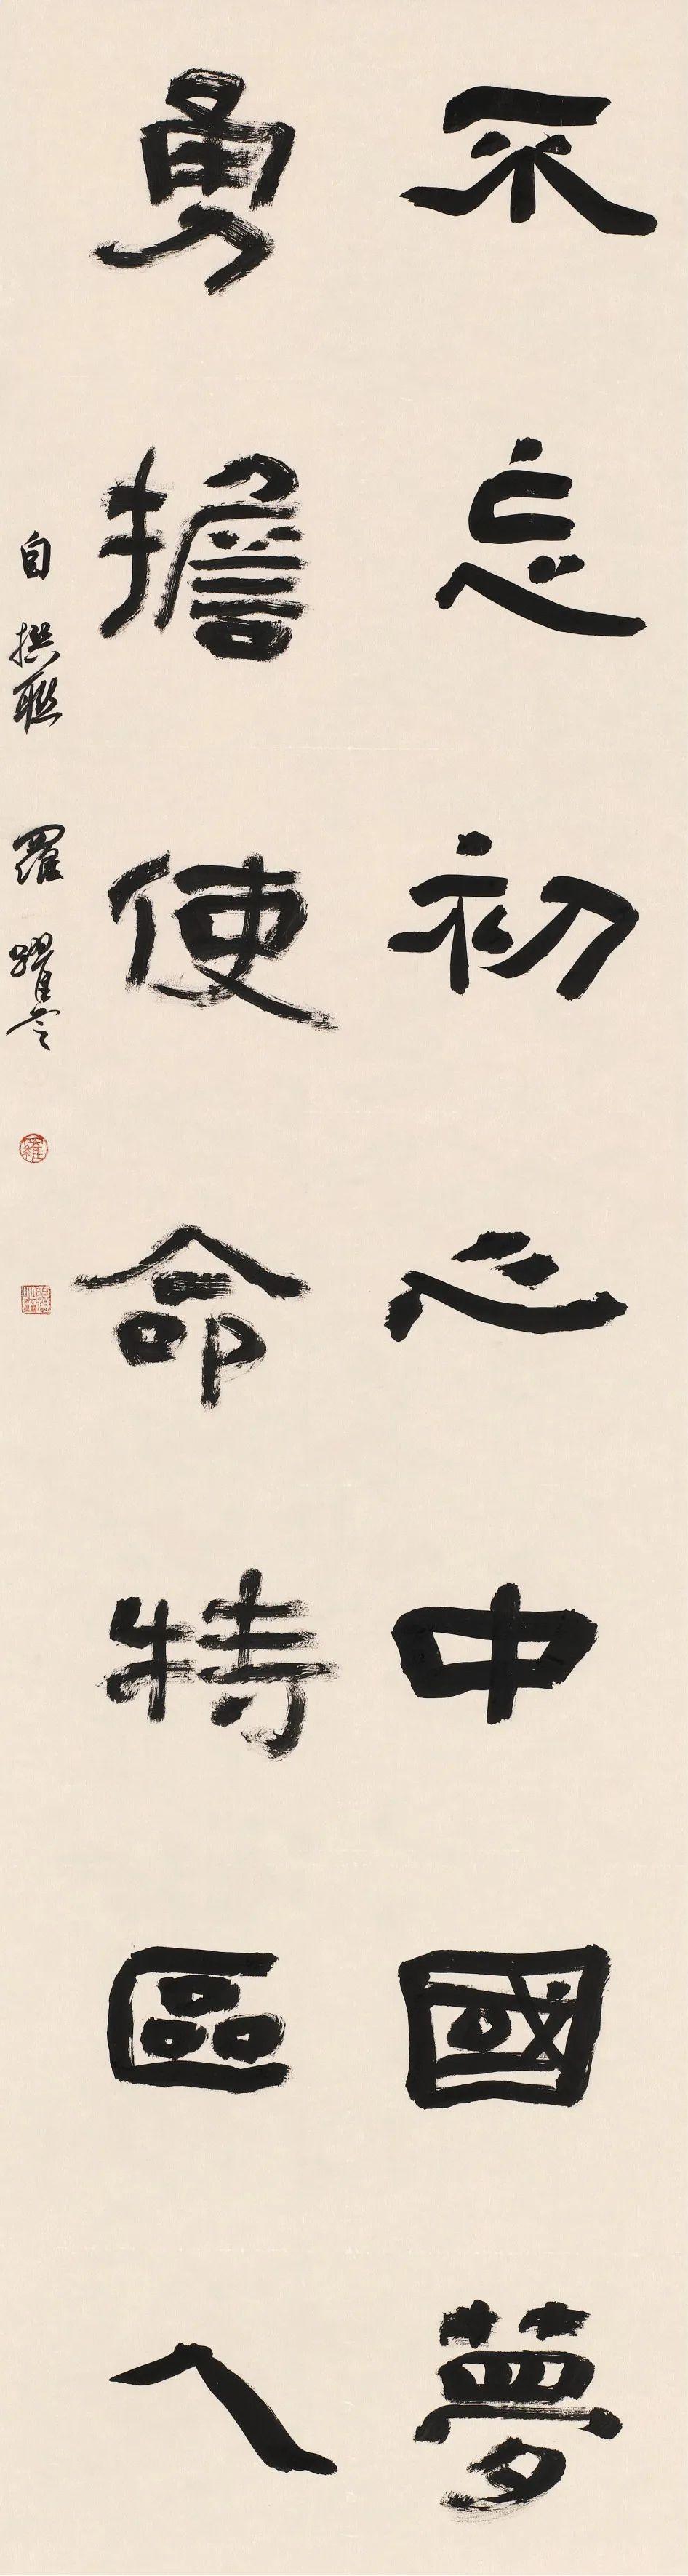 不忘初心中國夢
勇擔使命特區人
自撰聯 羅躍雲
羅